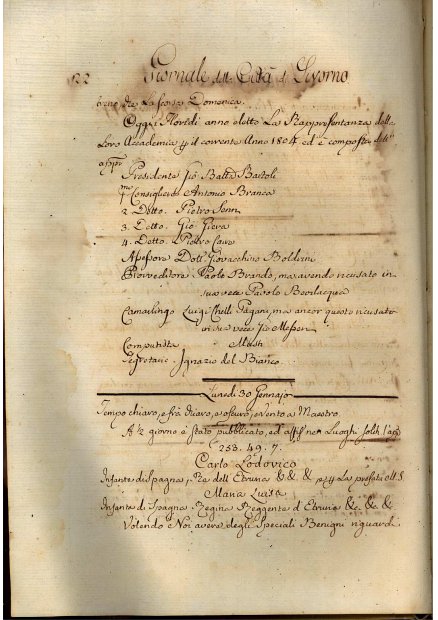 22 Giornale della Città di Livorno
la scorsa Domenica.
Oggi Nobili anno eletto La Rappresentanza delle
Loro Accademia p il corrente Anno 1804 ed è composta
appo
Presidente Gio Batta Bartoli
1mo Consigliere Antonio Branca
2. Detto. Pietro Senn
3. Detto. Gio Giera
4. Detto. Pietro
Assessore Dottr Giovacchino Boldrini
Provveditore Paolo Brando, ma avendo ricusato in
sua vece Paolo Bevilacqua
Camarlingo Luigi Chelli Pagani, ma ancor questo ricusato
in sua vece Jo
Computista
Segretario Ignazio del Bianco
Lunedi 30 Gennajo
Tempo chiaro, e frà chiaro, e oscuro, e vento a Maestro.
A ½ giorno è stato pubblicato, ed affo nei Luoghi soliti
253. 49. 7.
Carlo Lodovico
Infante di Spagna, Re dell'Etruria &. &. & e p La
Maria Luisa
Infanta di Spagna. Regina Reggente d'Etruria &c. &c. &c.
Volendo Noi avere degli Speciali Benigni riguardi